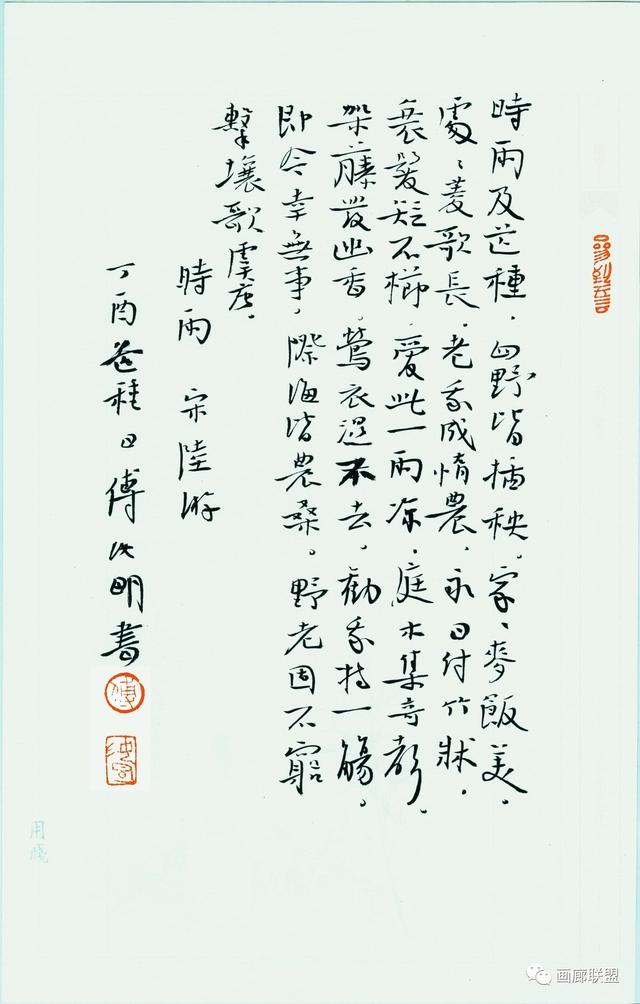 時雨及芒種，四野皆插秧。家、麥飯美，
處、菱歌長。老我成惰農，永日付竹牀，
衰髮短不櫛，愛此一雨涼。庭木集奇聲，
架藤發幽香。鶯衣濕不去，勸我持一觴。
即今幸無事，際海皆農桑。野老固不窮
擊壤歌虞唐。
時雨 宋陸游
丁酉芒種日傅明書
傅
用牋
画廊联盟